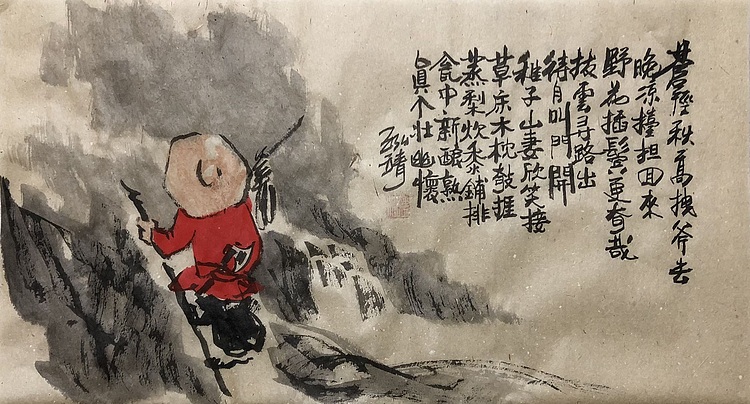 蒼徑秋高拽斧去
晚涼擡担回來
野花插鬢更奇哉
拔雲尋路出
待月叫門開
稚子山妻欣笑接
草床木枕敧捱
蒸梨炊黍鋪排
瓮中新釀熟
真个壯幽懷